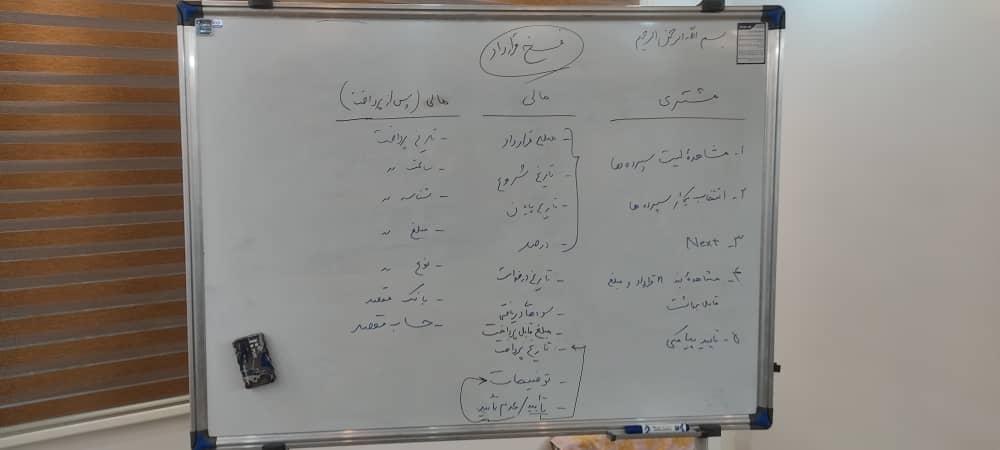 بسم الله الرحمن الرحیم
فسخ قرارداد
مشتری
۱- مشاهدهٔ لیست سپرده ها
۲- انتخاب یکی از سپرده ها
۳- Next
۴- مشاهدهٔ بند ۸ قرارداد و مبلغ
قابل برداشت
۵- تایید پیامکی
مالی
- مبلغ قرارداد
- تاریخ شروع
- تاریخ پایان
- درصد
- تاریخ درخواست
- سودهای دریافتی
- مبلغ قابل پرداخت
- تاریخ پرداخت
- توضیحات
- تأیید/عدم تأیید
مالی (پس از پرداخت)
- تاریخ پرداخت
- ساعت "
- شناسه "
- مبلغ "
- نوع "
- بانک مقصد
- حساب مقصد